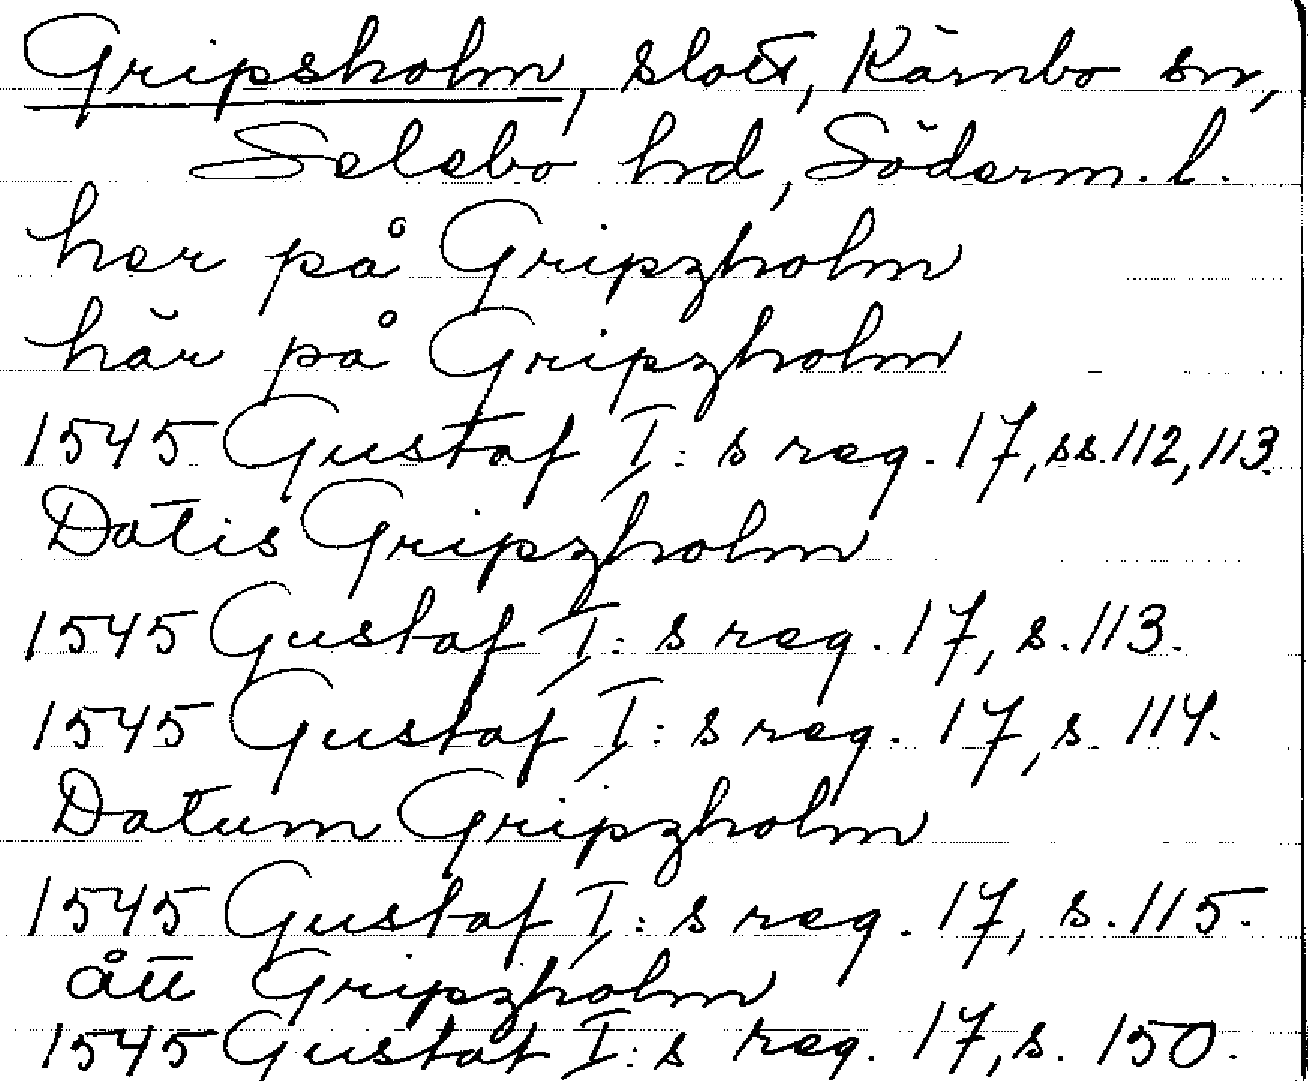 Gripsholm, slott, Kärnbo sn,
Selebo hrd, Söderm. l.
her på Gripzholm
här på Gripzholm
1545 Gustaf I: s reg. 17, ss. 112, 113.
Datis Gripzholm
1545 Gustaf I: s reg. 17, s. 113.
1545 Gustaf I: s reg. 17, s. 114.
Datum Gripzholm
1545 Gustaf I: s reg. 17, s. 115.
ått Gripzholm
1545 Gustaf I: s reg. 17, s. 150.